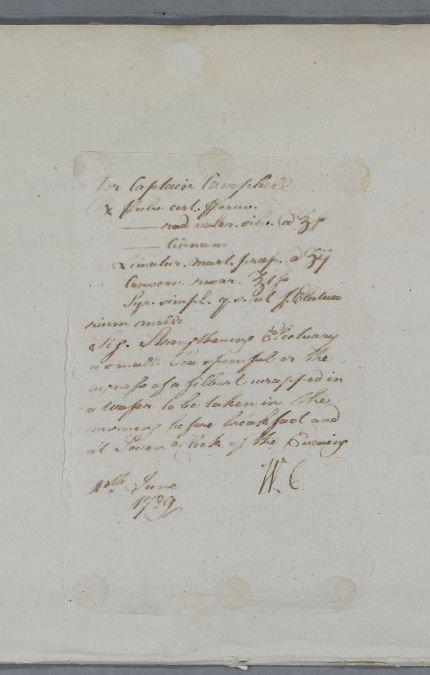 For Captain Campbell
℞ Pulv. cort. Peruv.
—— rad. valer. silv. a ʒß
—— Cinnam
Limatur. mart. præp. a ʒij
Conserv. rosar. ʒiß
Syr. simpl. q. s. ut f. Electua
rium molle
Sig. Strengthening Electuary
a small Tea spoonful or the
of a filbert wrapped in
a wafer to be taken in the
morning before breakfast and
at Seven o'Clock of the Evening
June
1789
W. C.